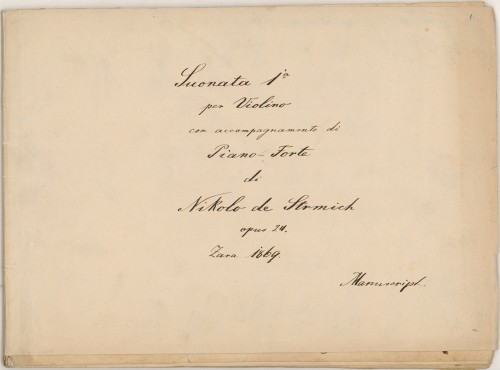 1
Suonata 1º
per Violino
con accompagnamento di
Piano-Forte
di
Nikolo de Strmich
opus 24.
Zara 1869.
Manuscript.